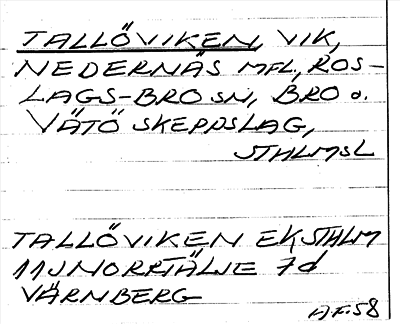 TALLÖVIKEN, VIK,
NEDERNÄS MFL, ROS-
LAGS-BRO SN, BRO o.
VÄTÖ SKEPPSLAG,
STHLMSL
TALLÖVIKEN EK STHLM
11J NORRTÄLJE 7d
VÄRNBERG
A.F. 58